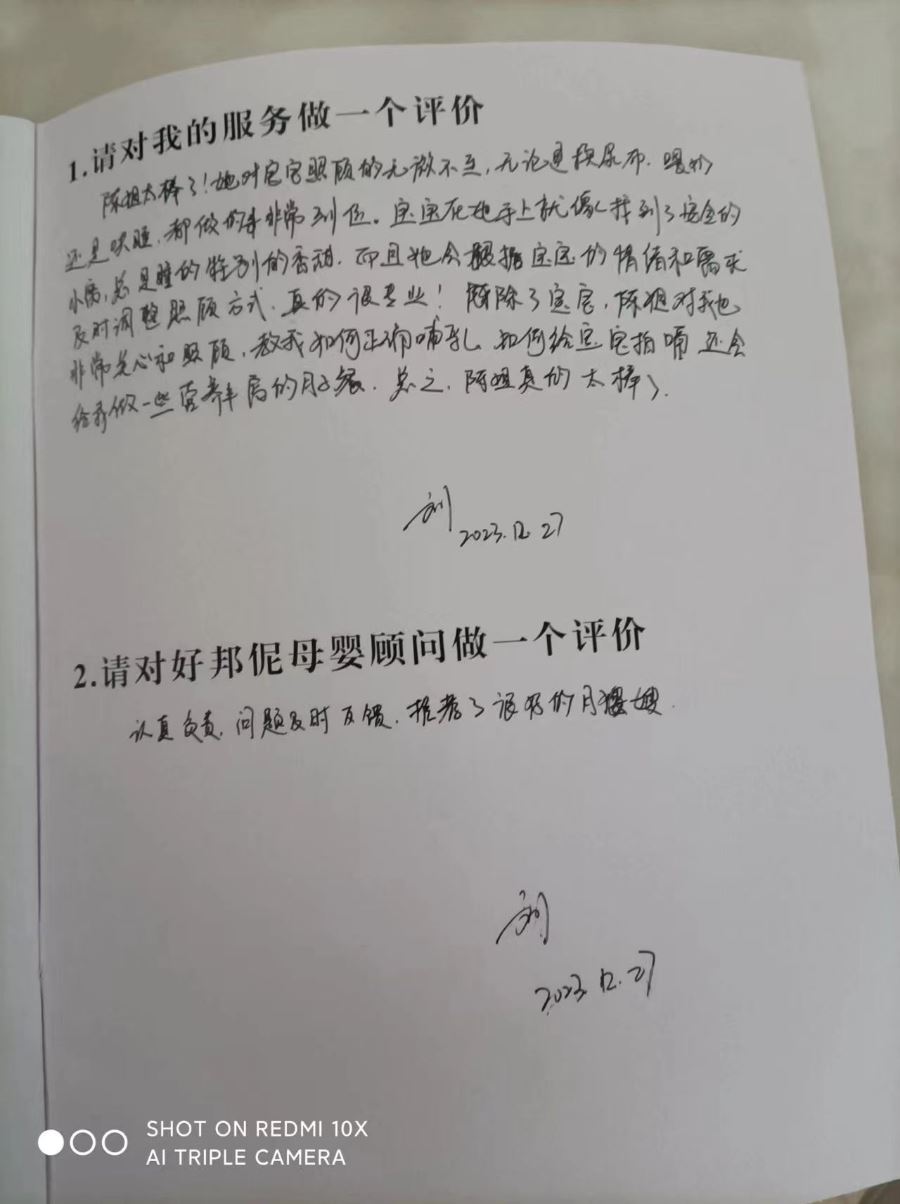 1.请对我的服务做一个评价
陈姐太棒了!她对宝宝照顾的无微不至,无论是换尿布、喂奶
还是哄睡,都做的非常到位。宝宝在她手上就像找到了安全的
小窝,总是睡的特别的香甜.而且她会根据宝宝的情绪和需求
及时调整照顾方式.真的很专业!除了宝宝,陈姐对我也
非常关心和照顾,教我如何正确哺乳 如何给宝宝拍嗝 还会
给我做一些营养丰富的月子餐.总之.陈姐真的太棒了.
刘
2023.12.27
2.请对好邦伲母婴顾问做一个评价
认真负责.问题及时反馈.推荐了很好的月嫂.
刘
2023.12.27
SHOT ON REDMI 10X
AI TRIPLE CAMERA